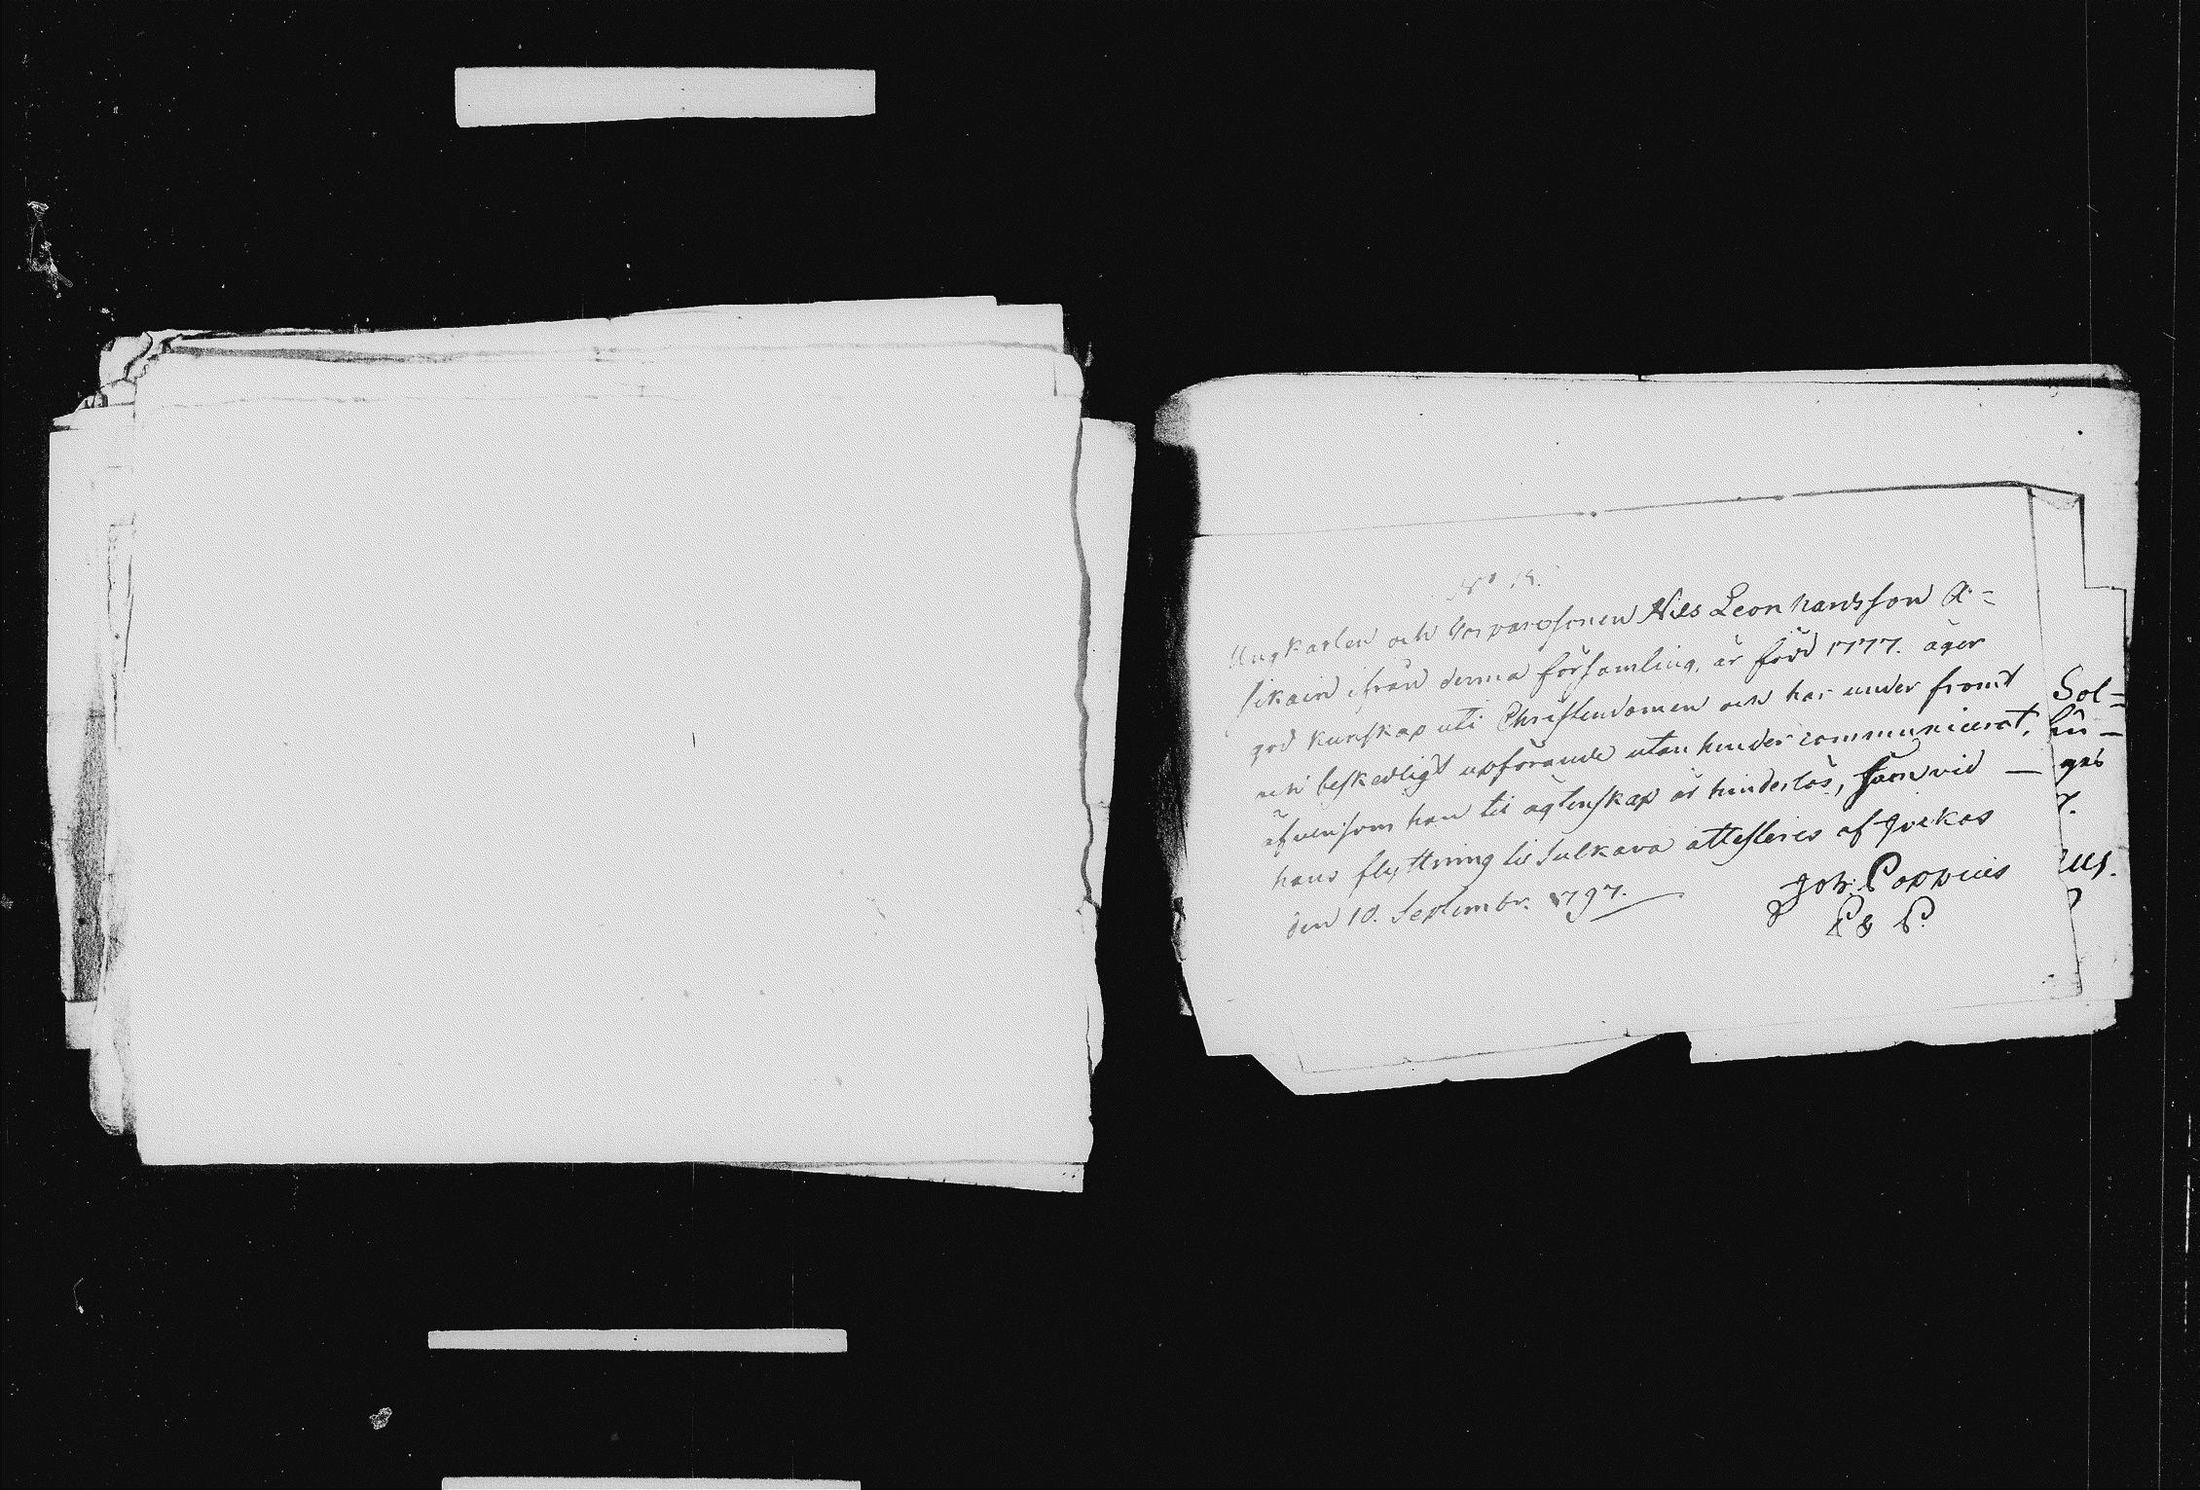 N° 15.
Ungkarlen och Torparesonen Nils Leonhardsson A=
sikain ifrån denna församling, är född 1777. äger
god kunskap uti Christendomen och har under fromt
och beskedligt upförande utan hinder communicerat,
äfvensom han til ägtenskap är hinderlös, som vid —
hans flyttning til Sulkava attesteres af Jockas
den 10. Septembr. 1797.
Joh: Poppius
P& P.
Sol=
hü —
gas
us.